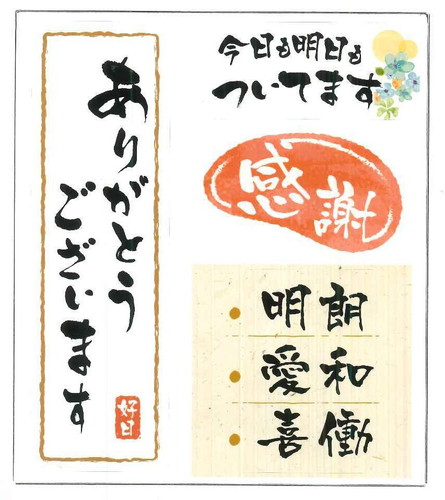 ありがとう
ございます
好日
今日も明日も
ついてます
感謝
明朗
愛和
喜働